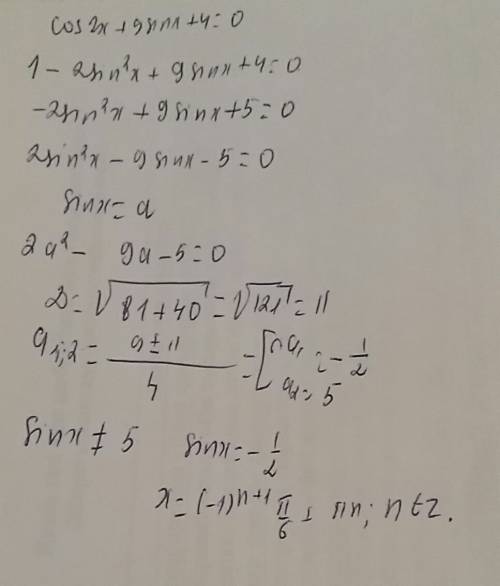 cos2x + 9sinx + 4 = 0
1 - 2sin²x + 9sinx + 4 = 0
-2sin²x + 9sinx + 5 = 0
2sin²x - 9sinx - 5 = 0
sinx = a
2a² - 9a - 5 = 0
D = √81+40 = √121 = 11
a₁;₂ = (9 ± 11)/4 = [ a₁ = -1/2
a₂ = 5
sinx ≠ 5 sinx = -1/2
x = (-1)ⁿ⁺¹ π/6 + πn; n ∈ Z.